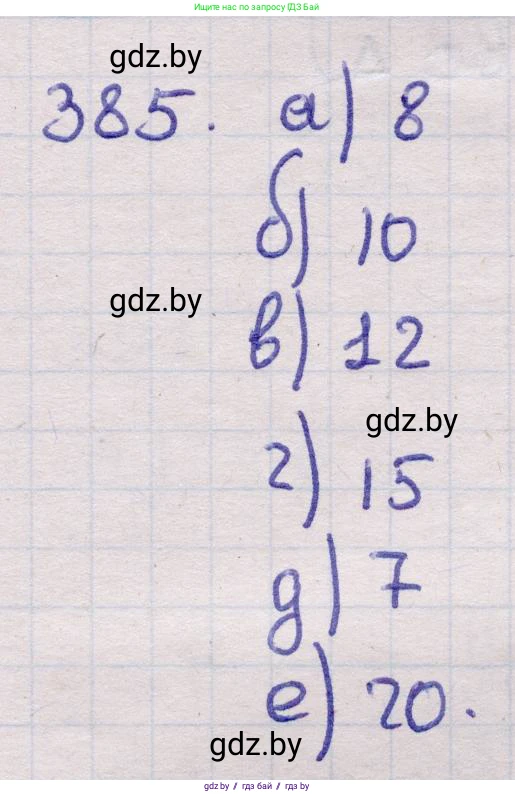 Ищите нас по запросу ГДЗ Бай
gdz.by
385. а) 8
б) 10
gdz.by
в) 12
gdz.by
г) 15
д) 7
е) 20.
gdz.by
gdz.by / гдз бай / gdz.by